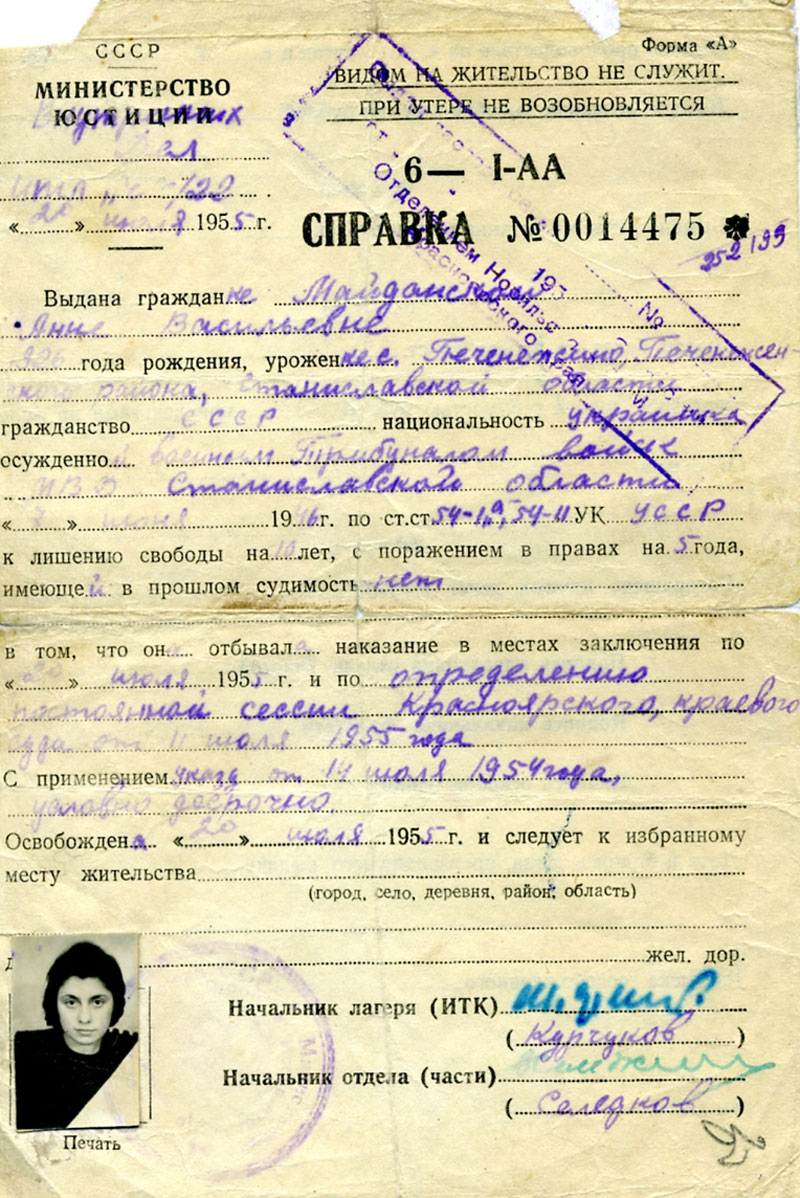 СССР
Форма «А»
МИНИСТЕРСТВО
ЮСТИЦИИ
Внутренних
Дел
ВИДОМ НА ЖИТЕЛЬСТВО НЕ СЛУЖИТ.
ПРИ УТЕРЕ НЕ ВОЗОБНОВЛЯЕТСЯ
6— I-АА
«20» июля 1955 г.
СПРАВКА №0014475
Выдана гражданке Майданской
Анне Васильевне
года рождения, уроженке с. Печенежино, Печенежин-
ского района, Станиславской области
гражданство СССР национальность украинка
осужденно й военным Трибуналом войск
МВД Станиславской области
«7» июня 1946 г. по ст.ст. 54-1, 54-11 УК УССР
к лишению свободы на 10 лет, с поражением в правах на 5 года,
имеющей в прошлом судимость нет
в том, что он а отбывал а наказание в местах заключения по
«20» июля 1955 г. и по определению
постоянной сессии Красноярского, краевого
суда от 11 июля 1955 года
С применением указа от 14 июля 1954 года,
условно досрочно
Освобождена «20» июля 1955 г. и следует к избранному
месту жительства
(город, село, деревня, район, область)
жел. дор.
Начальник лагеря (ИТК)
(Курчуков)
Начальник отдела (части)
(Селедков)
Печать